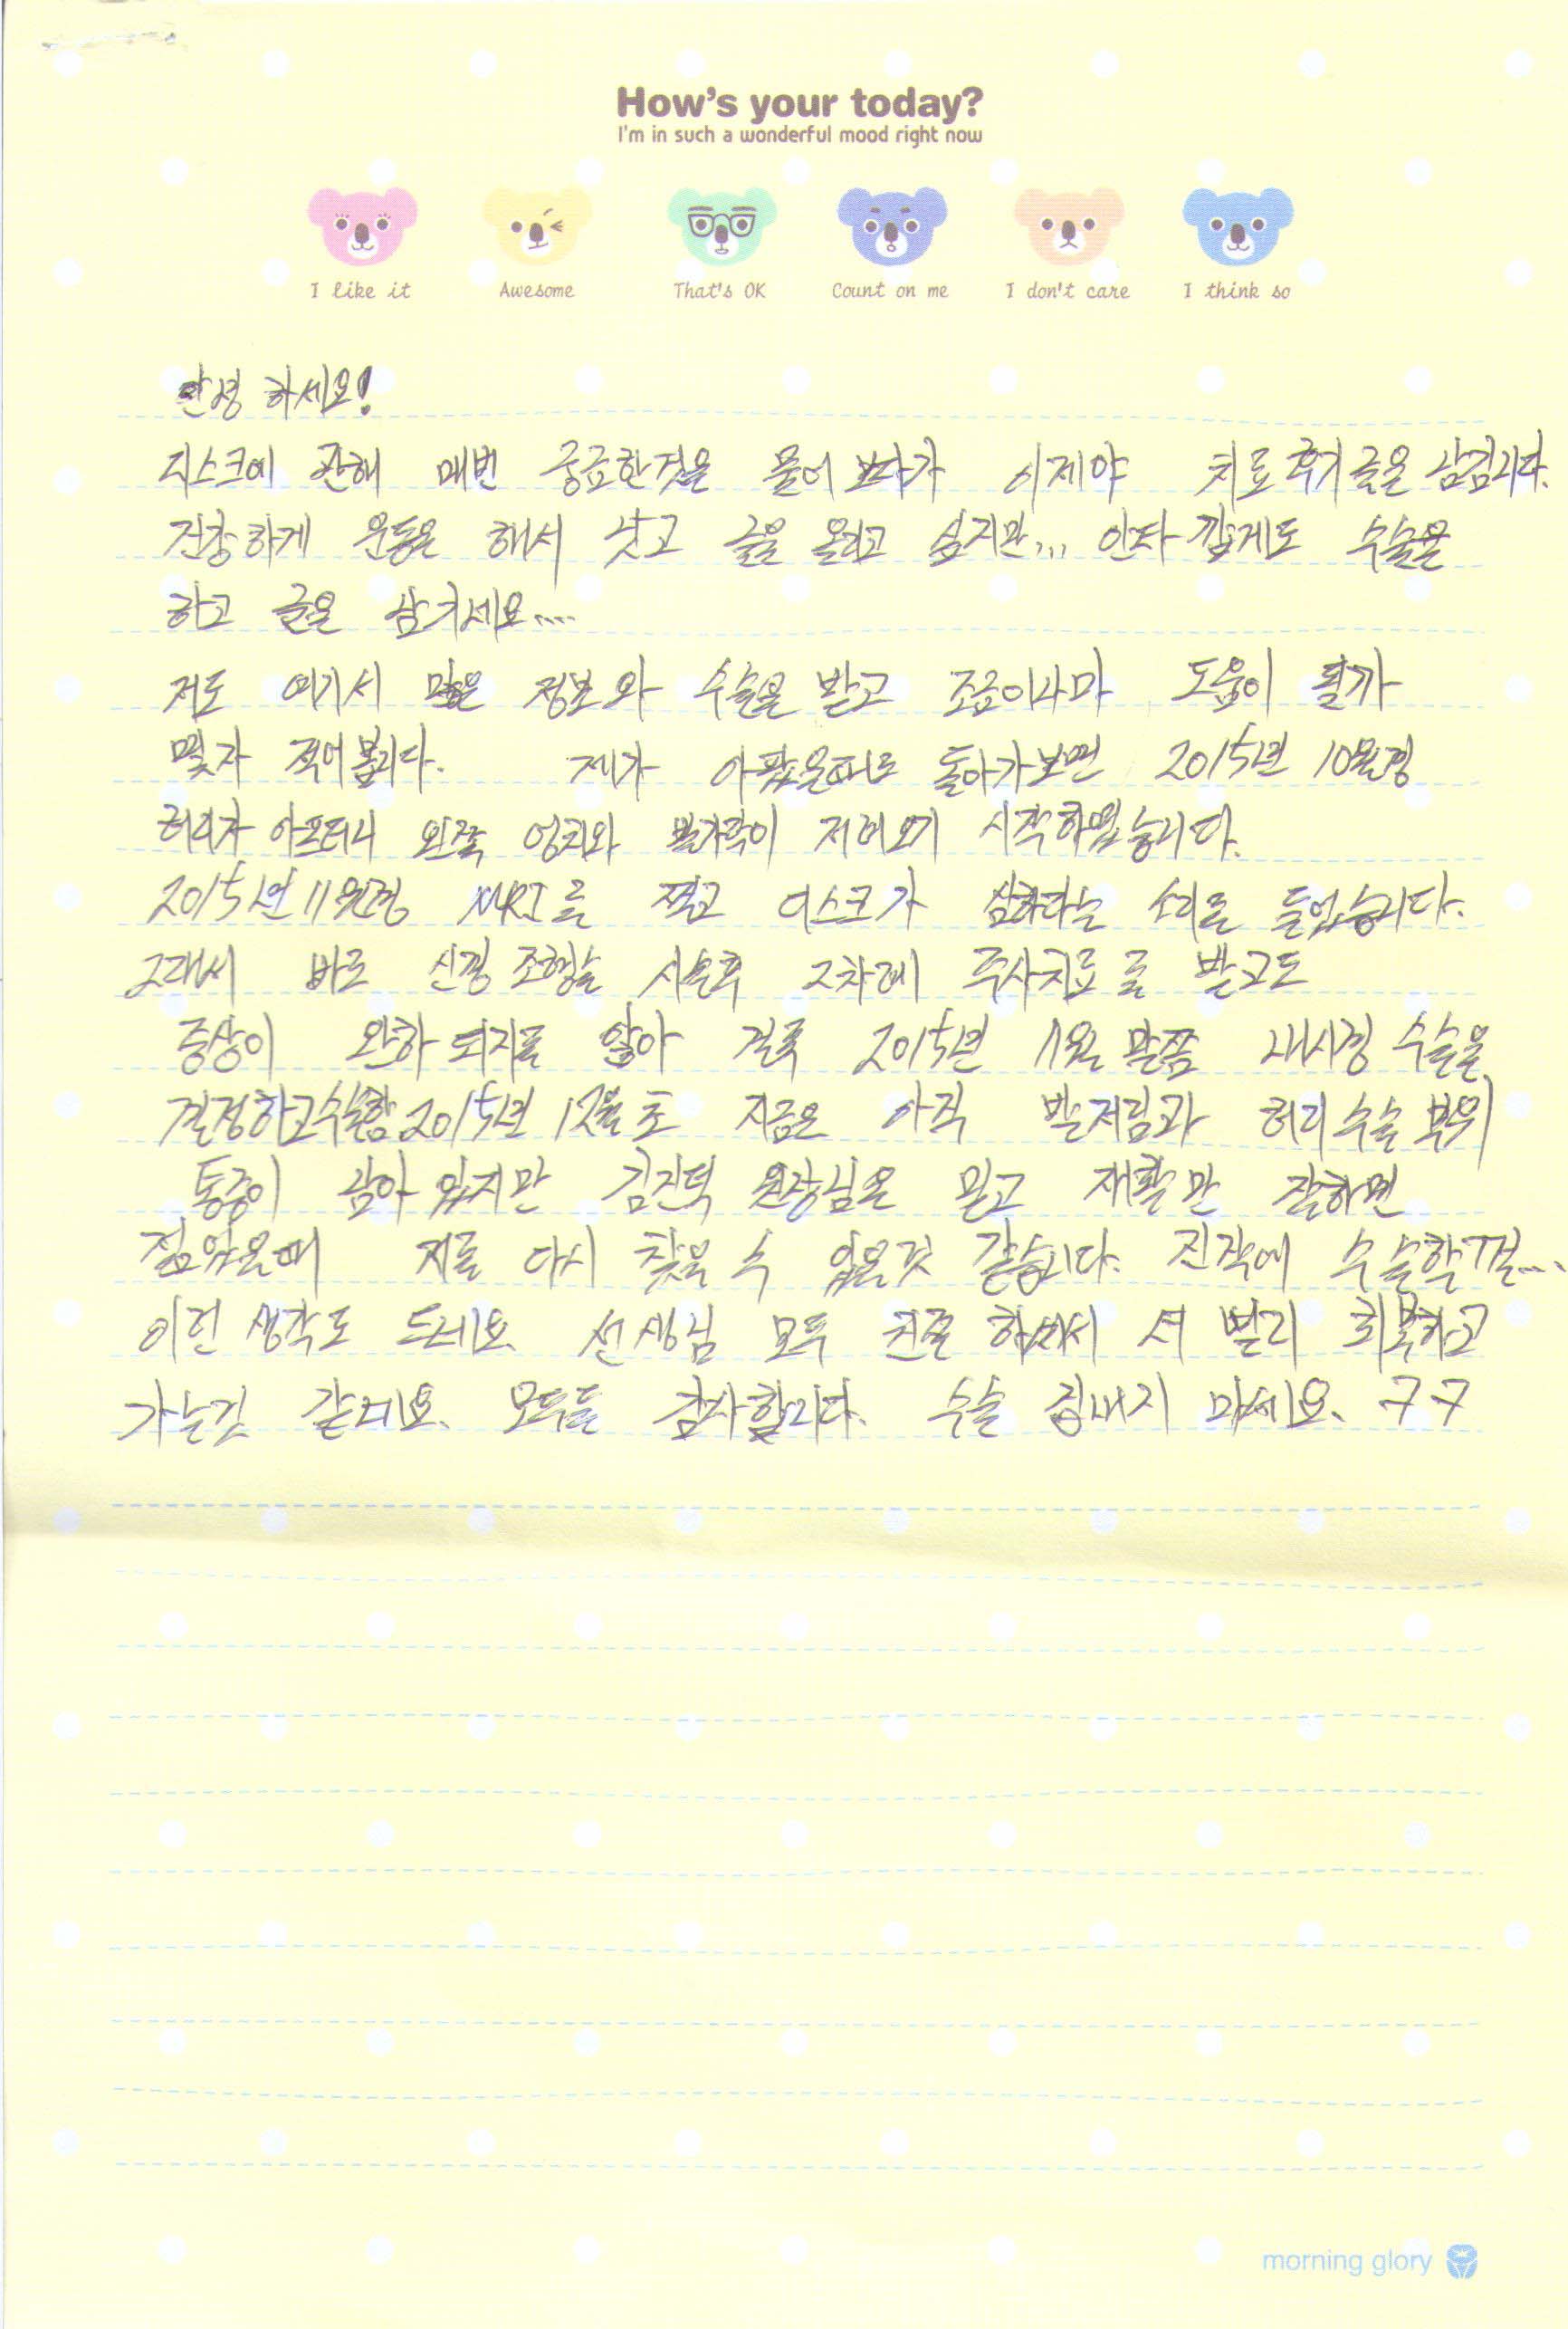 How's your today?
I'm in such a wonderful mood right now
I like it Awesome That's OK Count on me I don't care I think so
안녕 하세요!
디스크에 관해 매번 궁금한것을 물어 보다가 이제야 치료후기 글을 남깁니다.
건강하게 운동은 해서 낫고 글을 올리고 싶지만... 안타 깝게도 수술을
하고 글을 남기네요....
저도 여기서 많은 정보와 수술을 받고 조금이나마 도움이 될까
몇자 적어봅니다. 제가 아팠을때로 돌아가보면 2015년 10월경
허리가 아프더니 왼쪽 엉치와 발가락이 저려오기 시작하였습니다.
2015년 11월경 MRI를 찍고 디스크가 심하다는 소리를 들었습니다.
그래서 바로 신경 조형술 시술후 2차례 주사치료를 받고도
증상이 완화 되지를 않아 결국 2015년 11월 말쯤 내시경 수술을
결정하고수술함 2015년 12월 초 지금은 아직 발저림과 허리수술 부위
통증이 남아 있지만 김진덕 원장님을 믿고 재활만 잘하면
젊었을때 저를 다시 찾을 수 있을것 같습니다. 진작에 수술할껄...
이런 생각도 드네요. 선생님 모두 친절 하셔서 더 빨리 회복하고
가는것 같네요. 모두들 감사합니다. 수술 겁내지 마세요. ㅋㅋ
morning glory